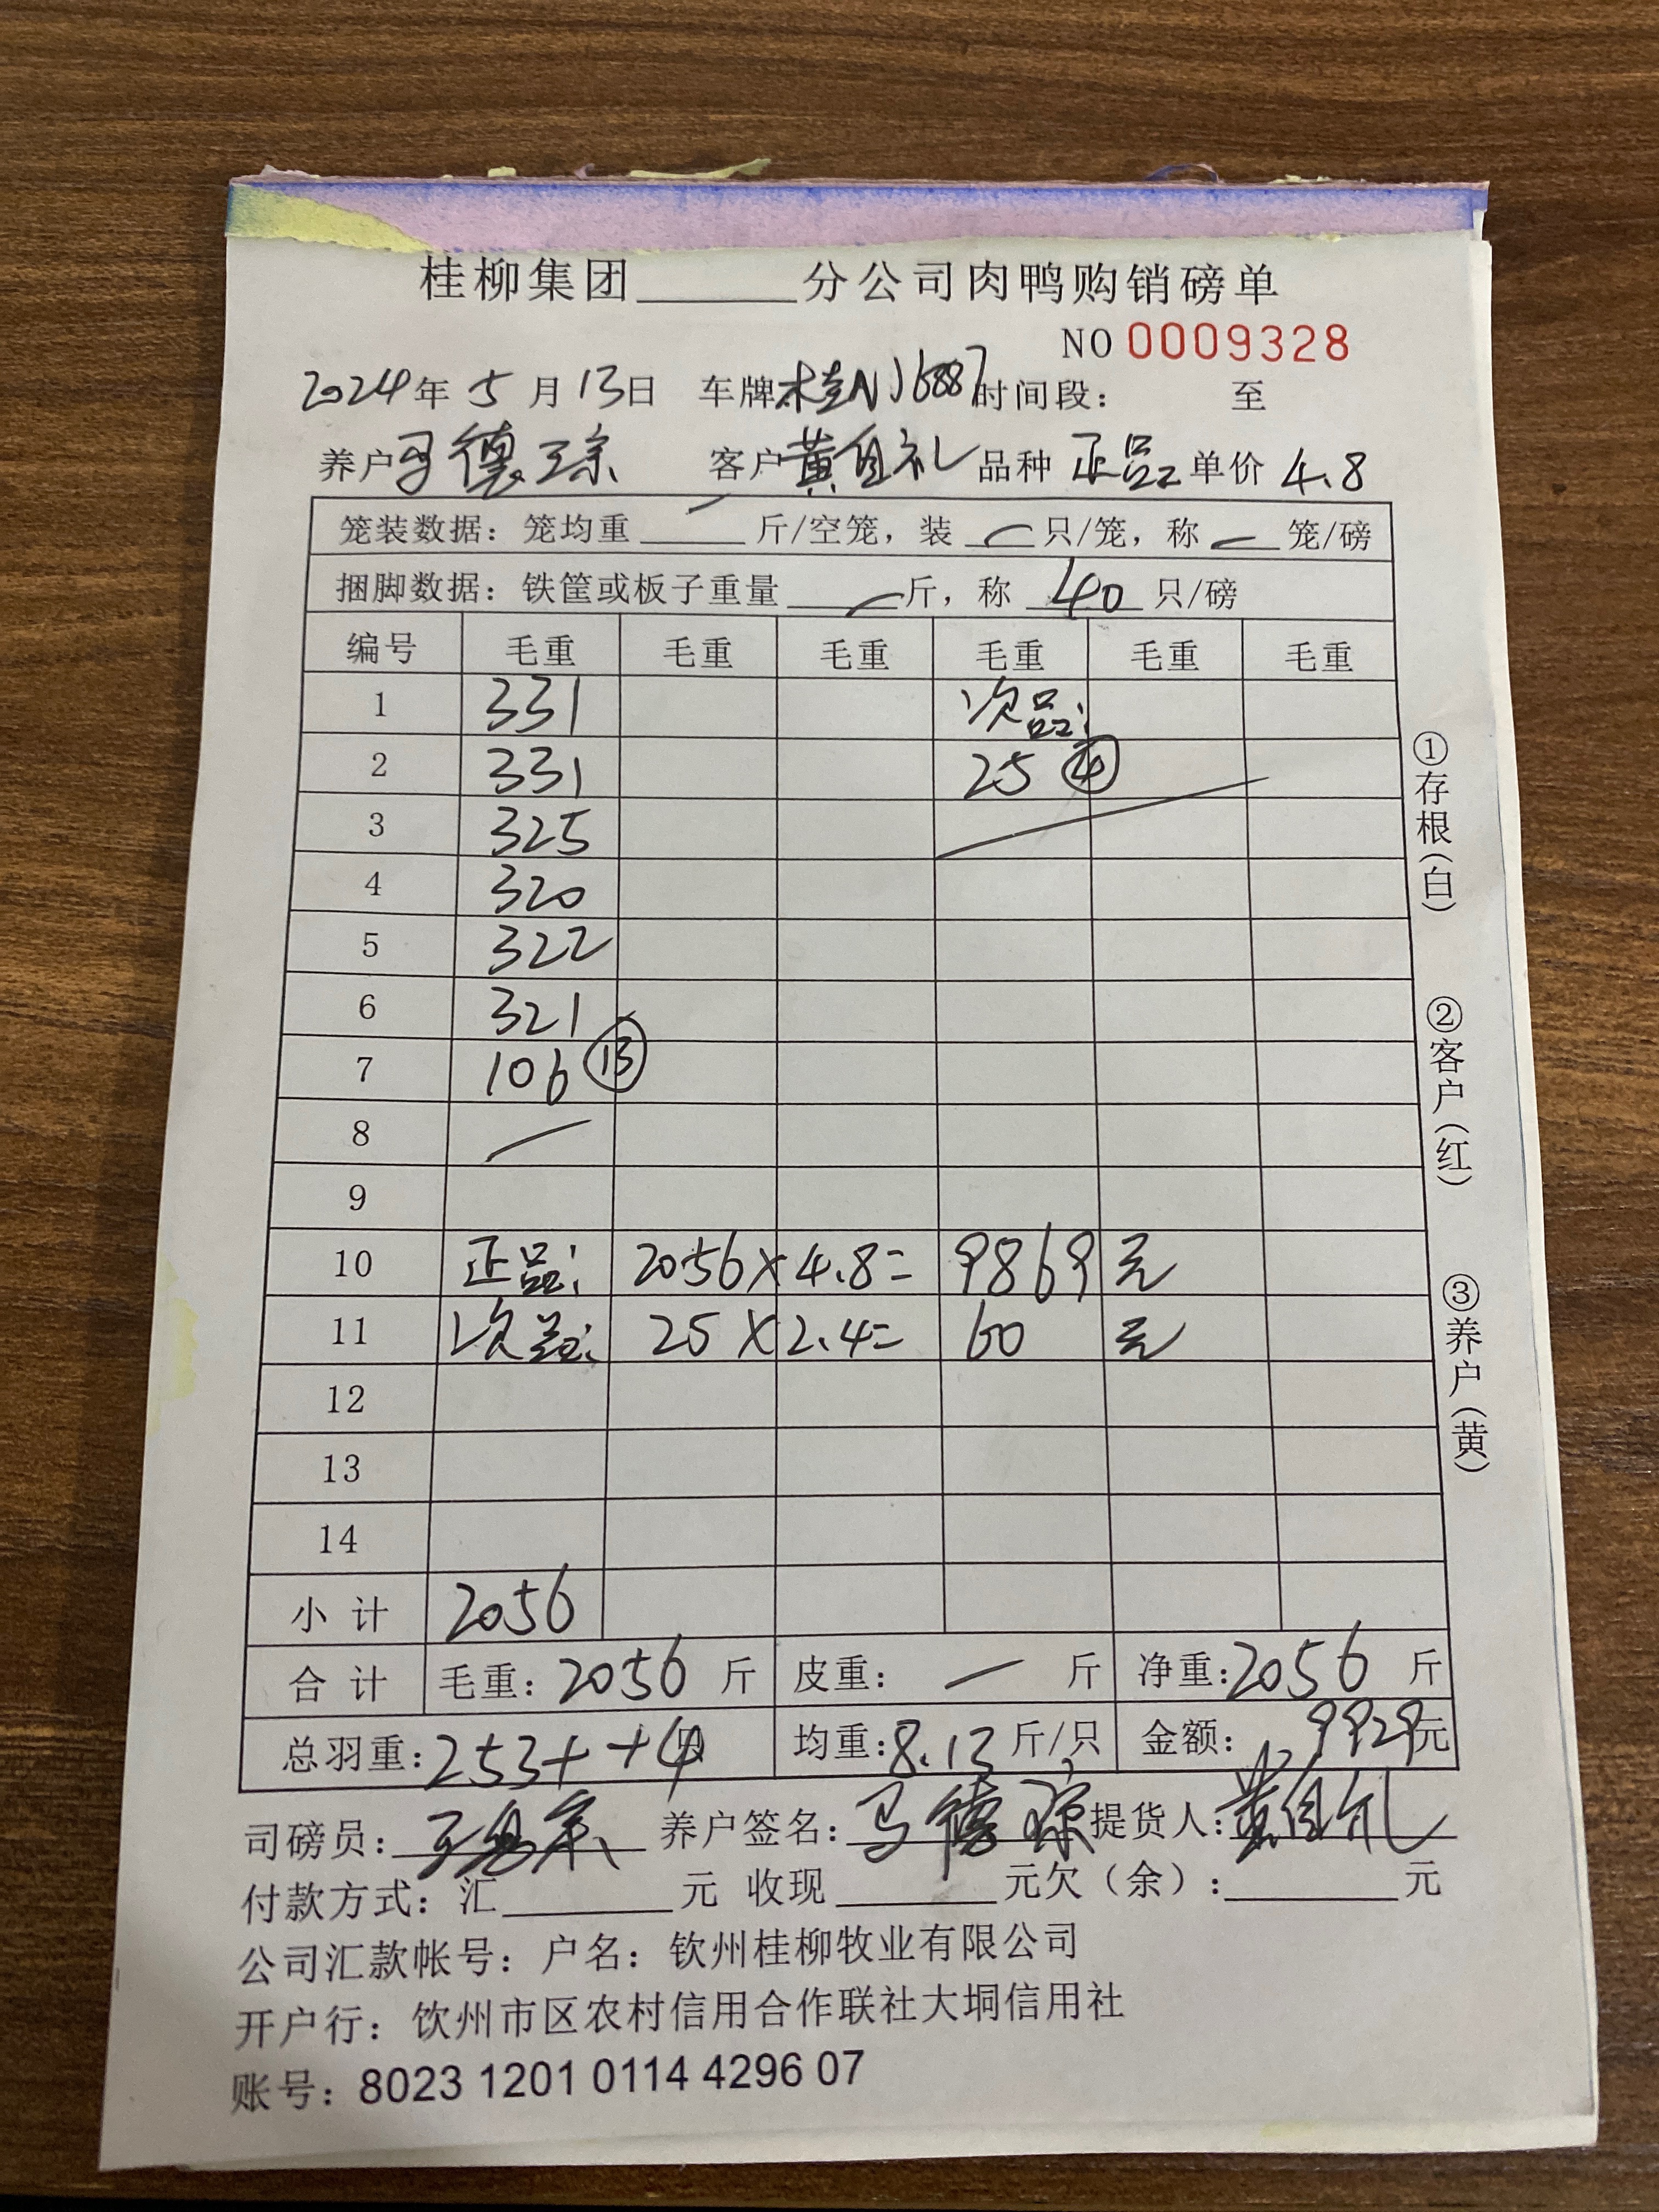 桂柳集团______分公司肉鸭购销磅单
NO 0009328
2024年 5 月 13日 车牌桂N16887时间段: 至
养户马德琼 客户黄自礼 品种 正品 单价 4.8
笼装数据:笼均重 — 斤/空笼,装 — 只/笼,称 — 笼/磅
捆脚数据:铁筐或板子重量 — 斤,称 40 只/磅
编号 毛重 毛重 毛重 毛重 毛重 毛重
1 331 次品:
2 331 25 ④
3 325
4 320
5 322
6 321
7 106 ⑬
8
9
10 正品: 2056×4.8= 9869 元
11 次品: 25×2.4= 60 元
12
13
14
小 计 2056
合 计 毛重:2056 斤 皮重: — 斤 净重:2056 斤
总羽重:253+ +4只 均重:8.13 斤/只 金额: 9929元
司磅员: 养户签名:马德琼 提货人:黄自礼
付款方式:汇______元 收现______元欠(余):______元
公司汇款帐号:户名:钦州桂柳牧业有限公司
开户行:饮州市区农村信用合作联社大垌信用社
账号:8023 1201 0114 4296 07
①存根(白)
②客户(红)
③养户(黄)